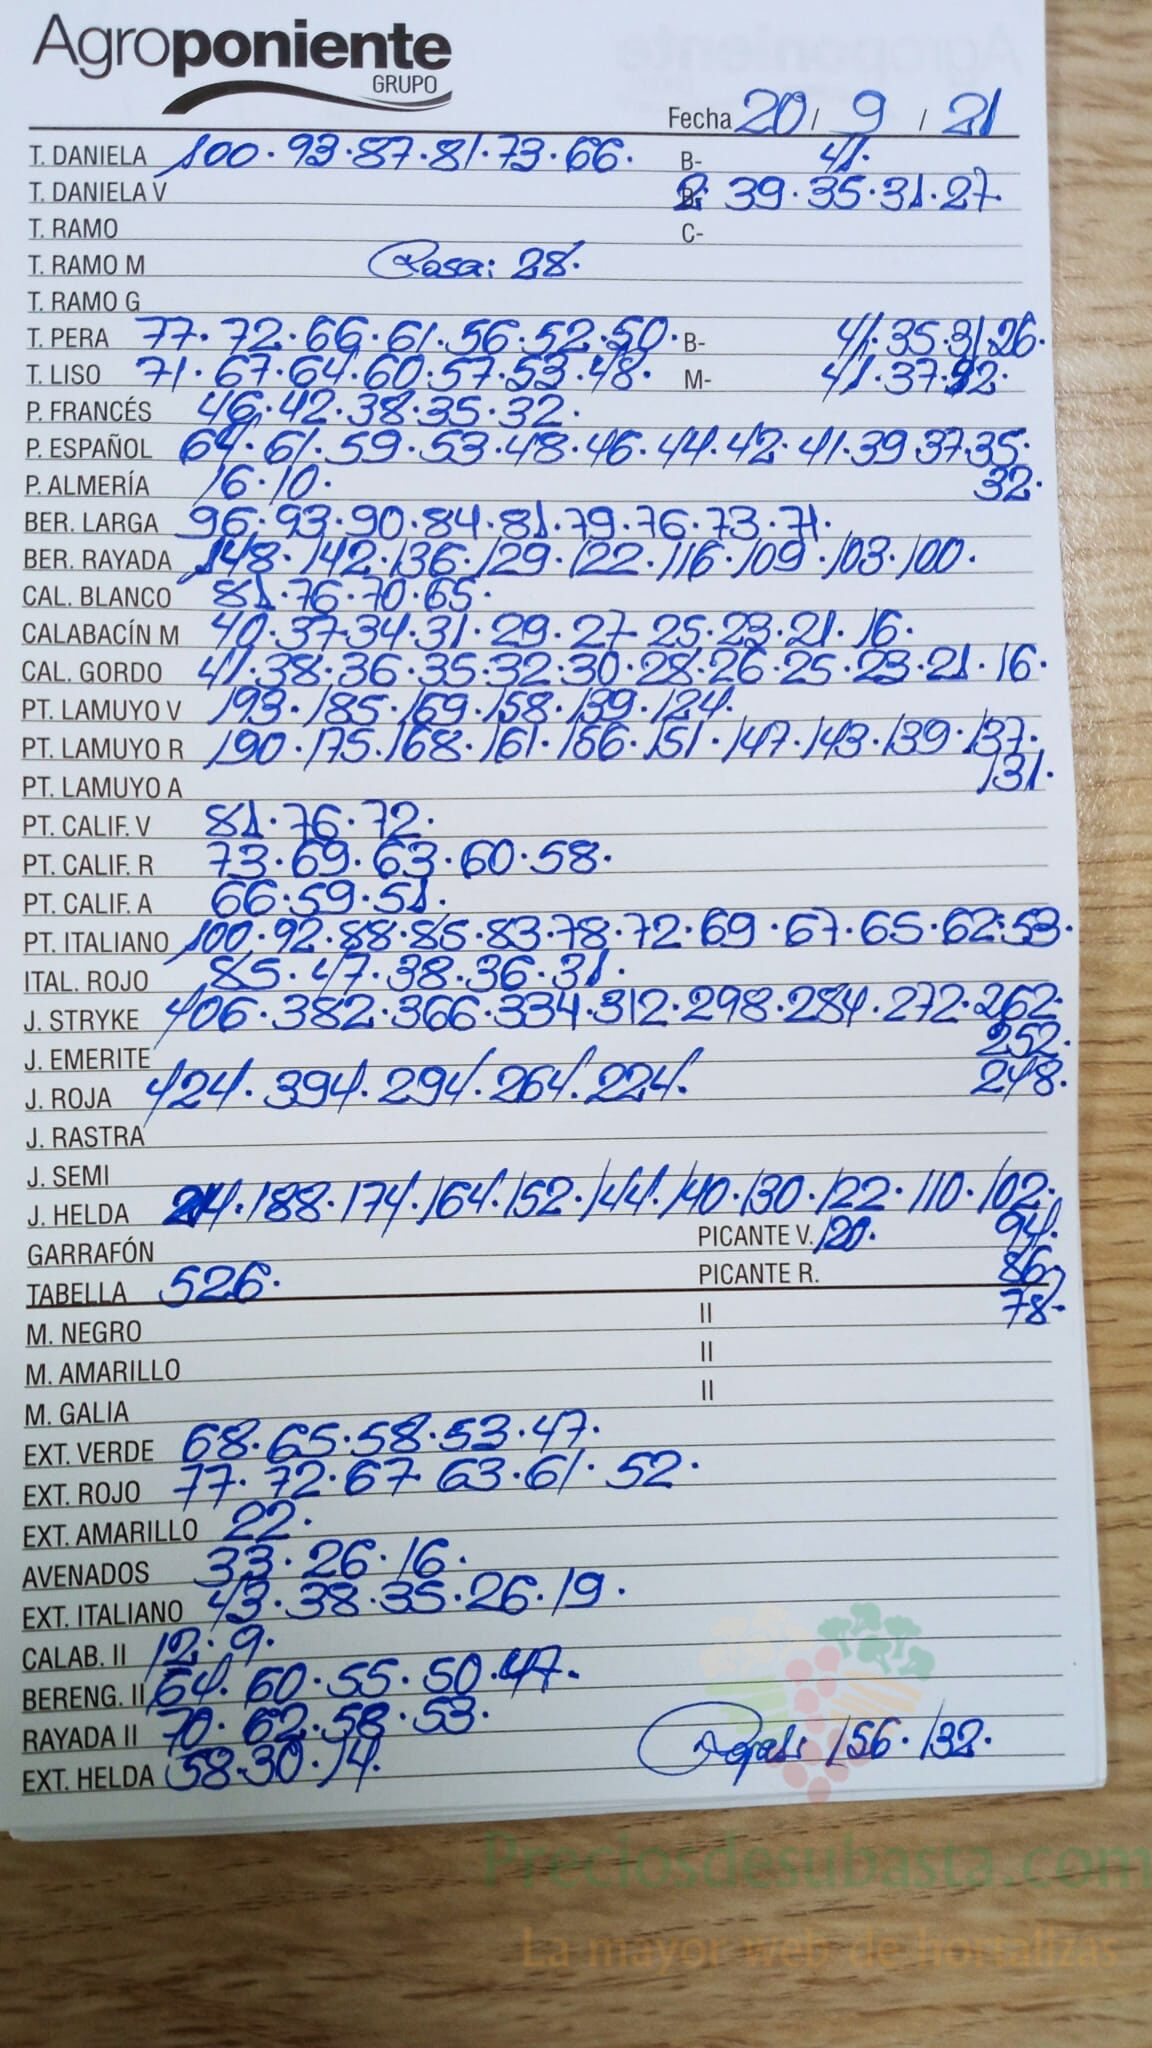 Agroponiente
GRUPO
Fecha 20 / 9 / 21
T. DANIELA 100·93·87·81·73·66· B- 41·
T. DANIELA V 2: 39·35·31·27·
T. RAMO C-
T. RAMO M Rosa: 28·
T. RAMO G
T. PERA 77·72·66·61·56·52·50· B- 41·35·31·26·
T. LISO 71·67·64·60·57·53·48· M- 41·37·32·
P. FRANCÉS 46·42·38·35·32·
P. ESPAÑOL 64·61·59·53·48·46·44·42·41·39·37·35·
32·
P. ALMERÍA 16·10·
BER. LARGA 96·93·90·84·81·79·76·73·71·
BER. RAYADA 148·142·136·129·122·116·109·103·100·
CAL. BLANCO 81·76·70·65·
CALABACÍN M 40·37·34·31·29·27·25·23·21·16·
CAL. GORDO 41·38·36·35·32·30·28·26·25·23·21·16·
PT. LAMUYO V 193·185·169·158·139·124·
PT. LAMUYO R 190·175·168·161·156·151·147·143·139·137·
131·
PT. LAMUYO A
PT. CALIF. V 81·76·72·
PT. CALIF. R 73·69·63·60·58·
PT. CALIF. A 66·59·51·
PT. ITALIANO 100·92·88·85·83·78·72·69·67·65·62·53·
ITAL. ROJO 85·47·38·36·31·
J. STRYKE 406·382·366·334·312·298·284·272·262·
252·
248·
J. EMERITE
J. ROJA 424·394·294·264·224·
J. RASTRA
J. SEMI
J. HELDA 214·188·174·164·152·144·140·130·122·110·102·
94·
86·
78·
GARRAFÓN PICANTE V. 120·
TABELLA 526· PICANTE R.
M. NEGRO II
M. AMARILLO II
M. GALIA II
EXT. VERDE 68·65·58·53·47·
EXT. ROJO 77·72·67·63·61·52·
EXT. AMARILLO 22·
AVENADOS 33·26·16·
EXT. ITALIANO 43·38·35·26·19·
CALAB. II 12·9·
BERENG. II 64·60·55·50·47·
RAYADA II 70·62·58·53·
EXT. HELDA 58·30·14· 156·132·
Preciosdesubasta.com
La mayor web de hortalizas